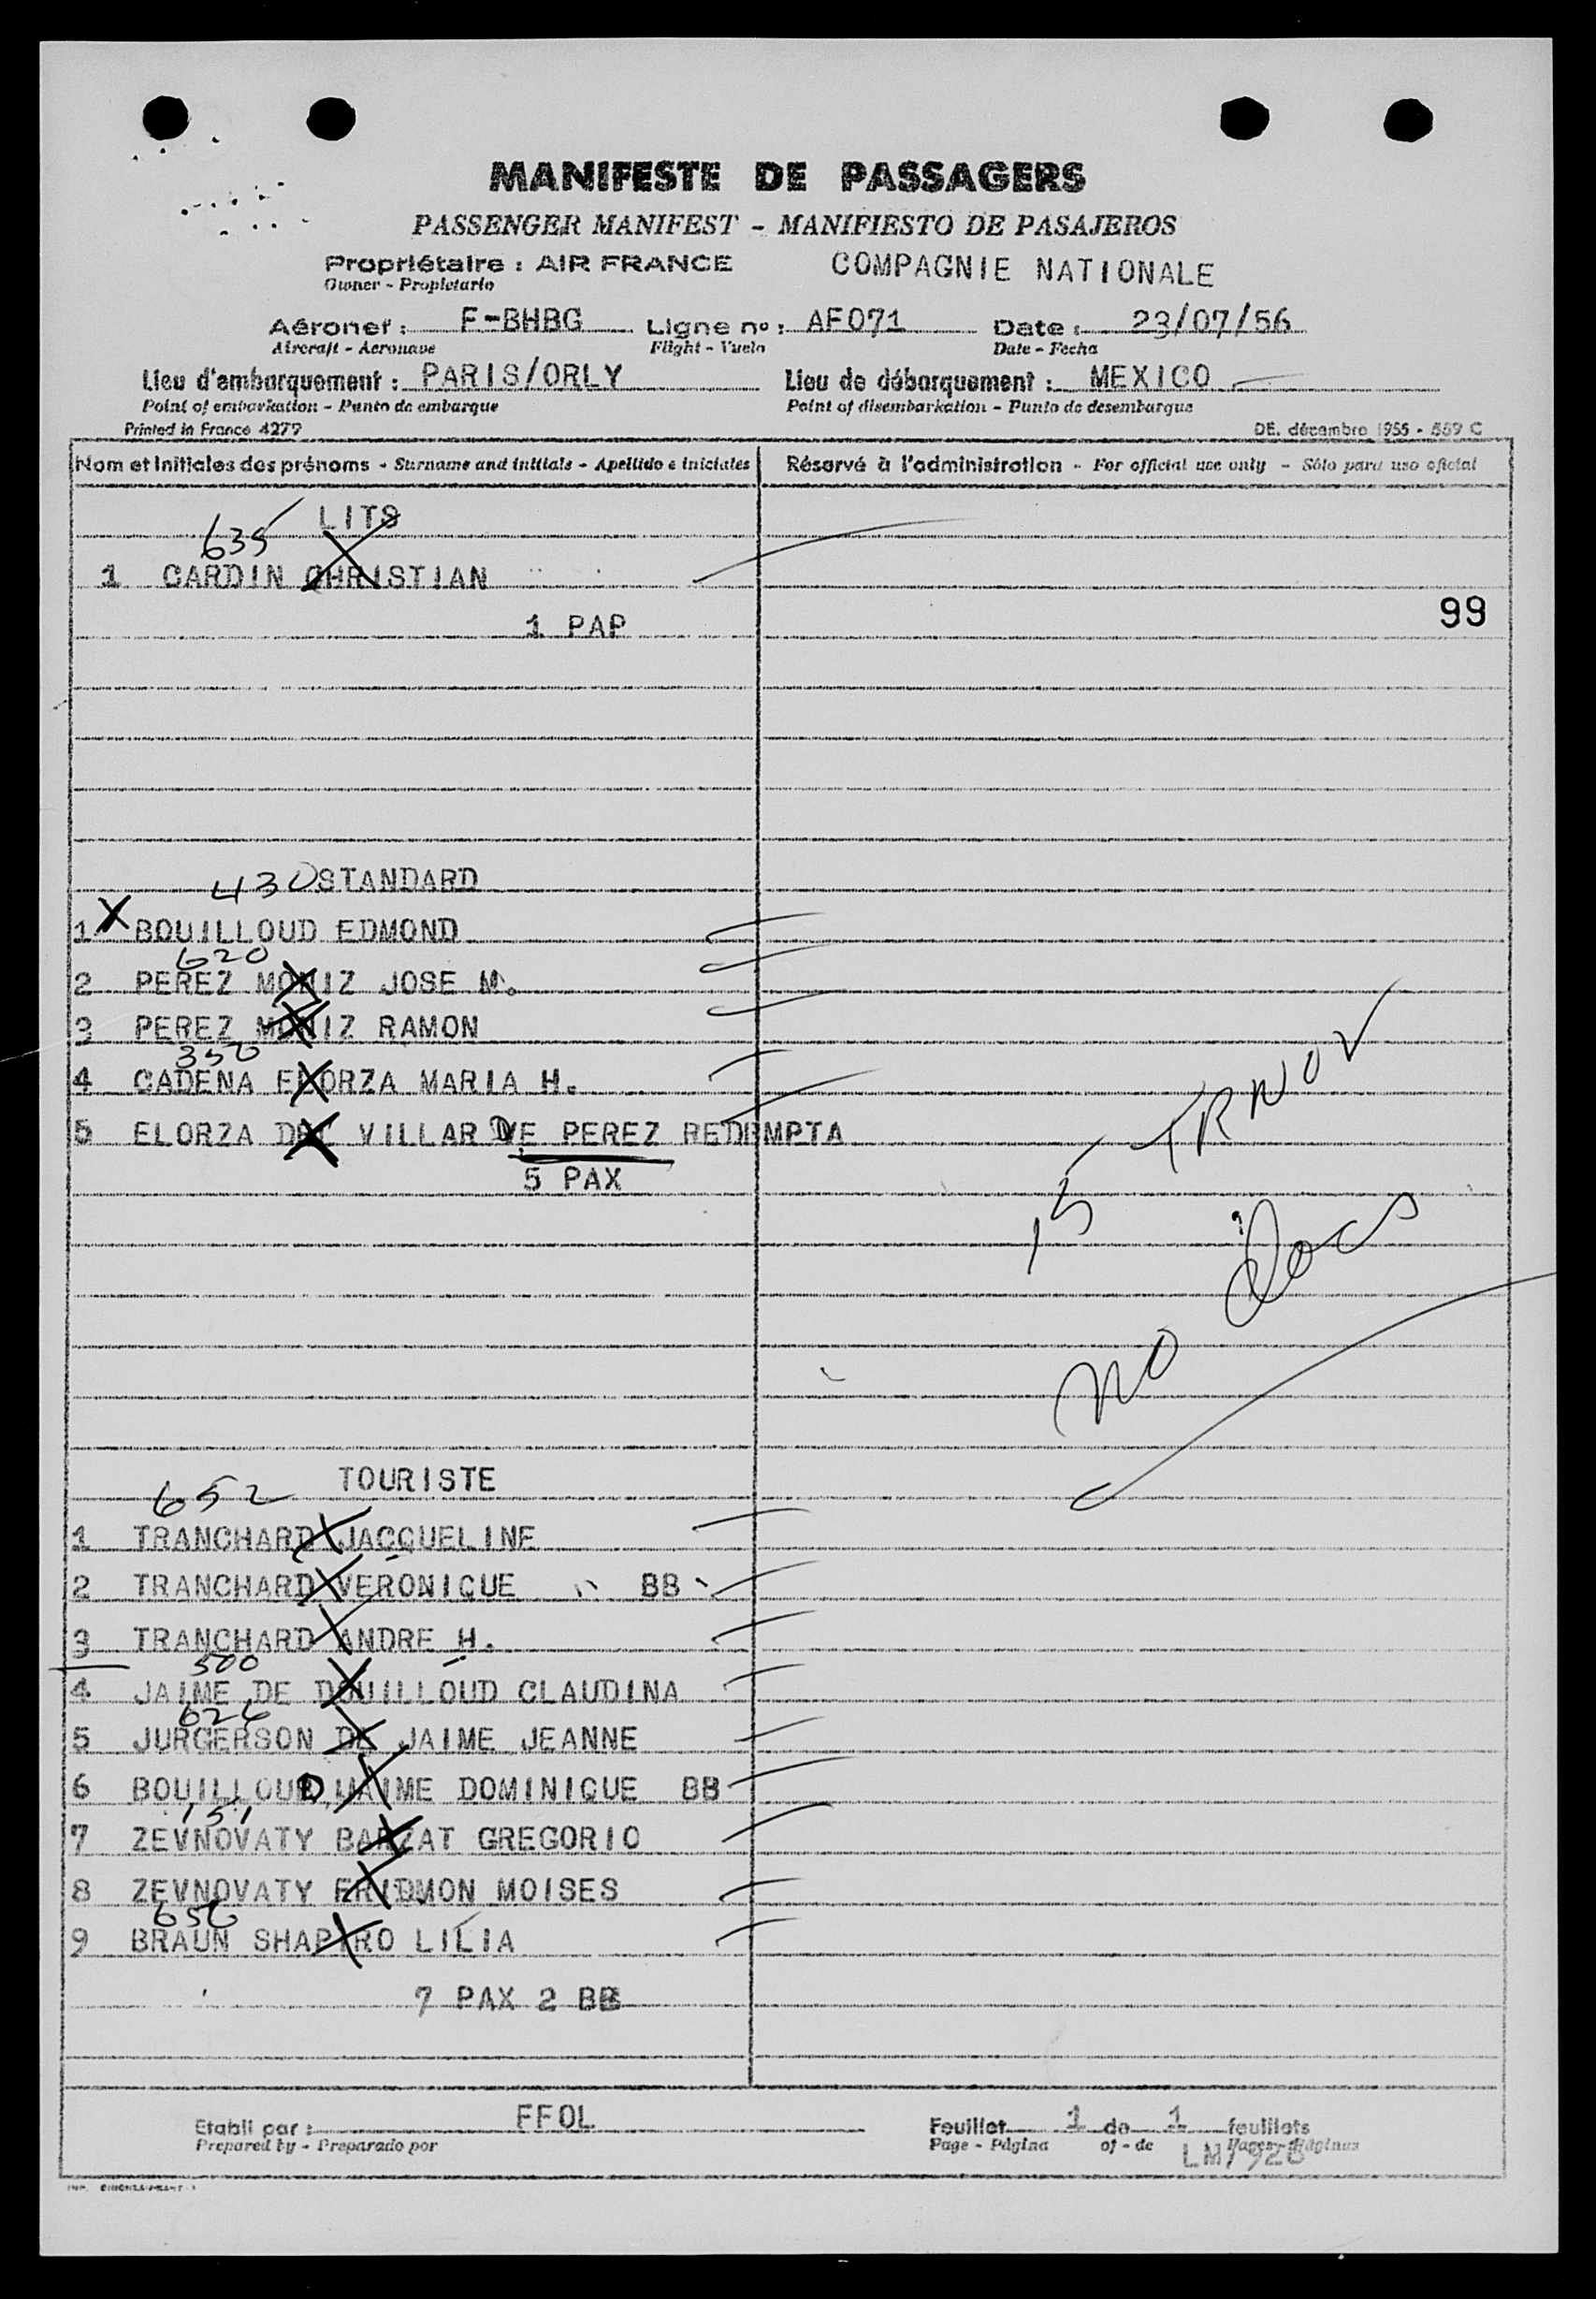 MANIFESTE DE PASSAGERS
PASSENGER MANIFEST - MANIFIESTO DE PASAJEROS
Propriétaire : AIR FRANCE COMPAGNIE NATIONALE
Owner - Propietario
Aéronef : F-BHBG Ligne nº : AF071 Date : 23/07/56
Aircraft - Aeronave Flight - Vuelo Date - Fecha
Lieu d'embarquement : PARIS/ORLY Lieu de débarquement : MEXICO
Point of embarkation - Punto de embarque Point of disembarkation - Punto de desembarque
Printed in France 4279 DE. décembre 1955 - 559 C
Nom et initiales des prénoms - Surname and initials - Apellido e iniciales Réservé à l'administration - For official use only - Sólo para uso oficial
635 LITS
1 CARDIN CHRISTIAN
1 PAP
99
430 STANDARD
1 X BOUILLOUD EDMOND
620
2 PEREZ MONIZ JOSE M.
3 PEREZ MONIZ RAMON
350
4 CADENA ELORZA MARIA H.
5 ELORZA DEL VILLAR DE PEREZ REDEMPTA
5 PAX
15 TRNOV
no Docs
652 TOURISTE
1 TRANCHARD JACQUELINE
2 TRANCHARD VERONIQUE BB
3 TRANCHARD ANDRE H.
500
4 JAIME DE DOUILLOUD CLAUDINA
626
5 JURGERSON DE JAIME JEANNE
6 BOUILLOUD JAIME DOMINIQUE BB
151
7 ZEVNOVATY BARZAT GREGORIO
8 ZEVNOVATY FRIDMON MOISES
656
9 BRAUN SHAPIRO LILIA
7 PAX 2 BB
Etabli par : FFOL Feuillet 1 de 1 feuillets
Prepared by - Preparado por Page - Página of - de Pages - Páginas